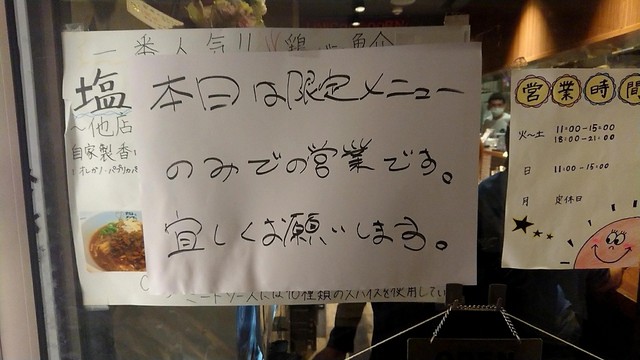 一番人気!! 鶏 魚介
塩
~他店
自家製香
本日は限定メニュー
のみでの営業です。
宜しくお願いします。
ソースには10種類のスパイスを使用してい
営業時間
火~土 11:00-15:00
18:00-21:00
日 11:00-15:00
月 定休日